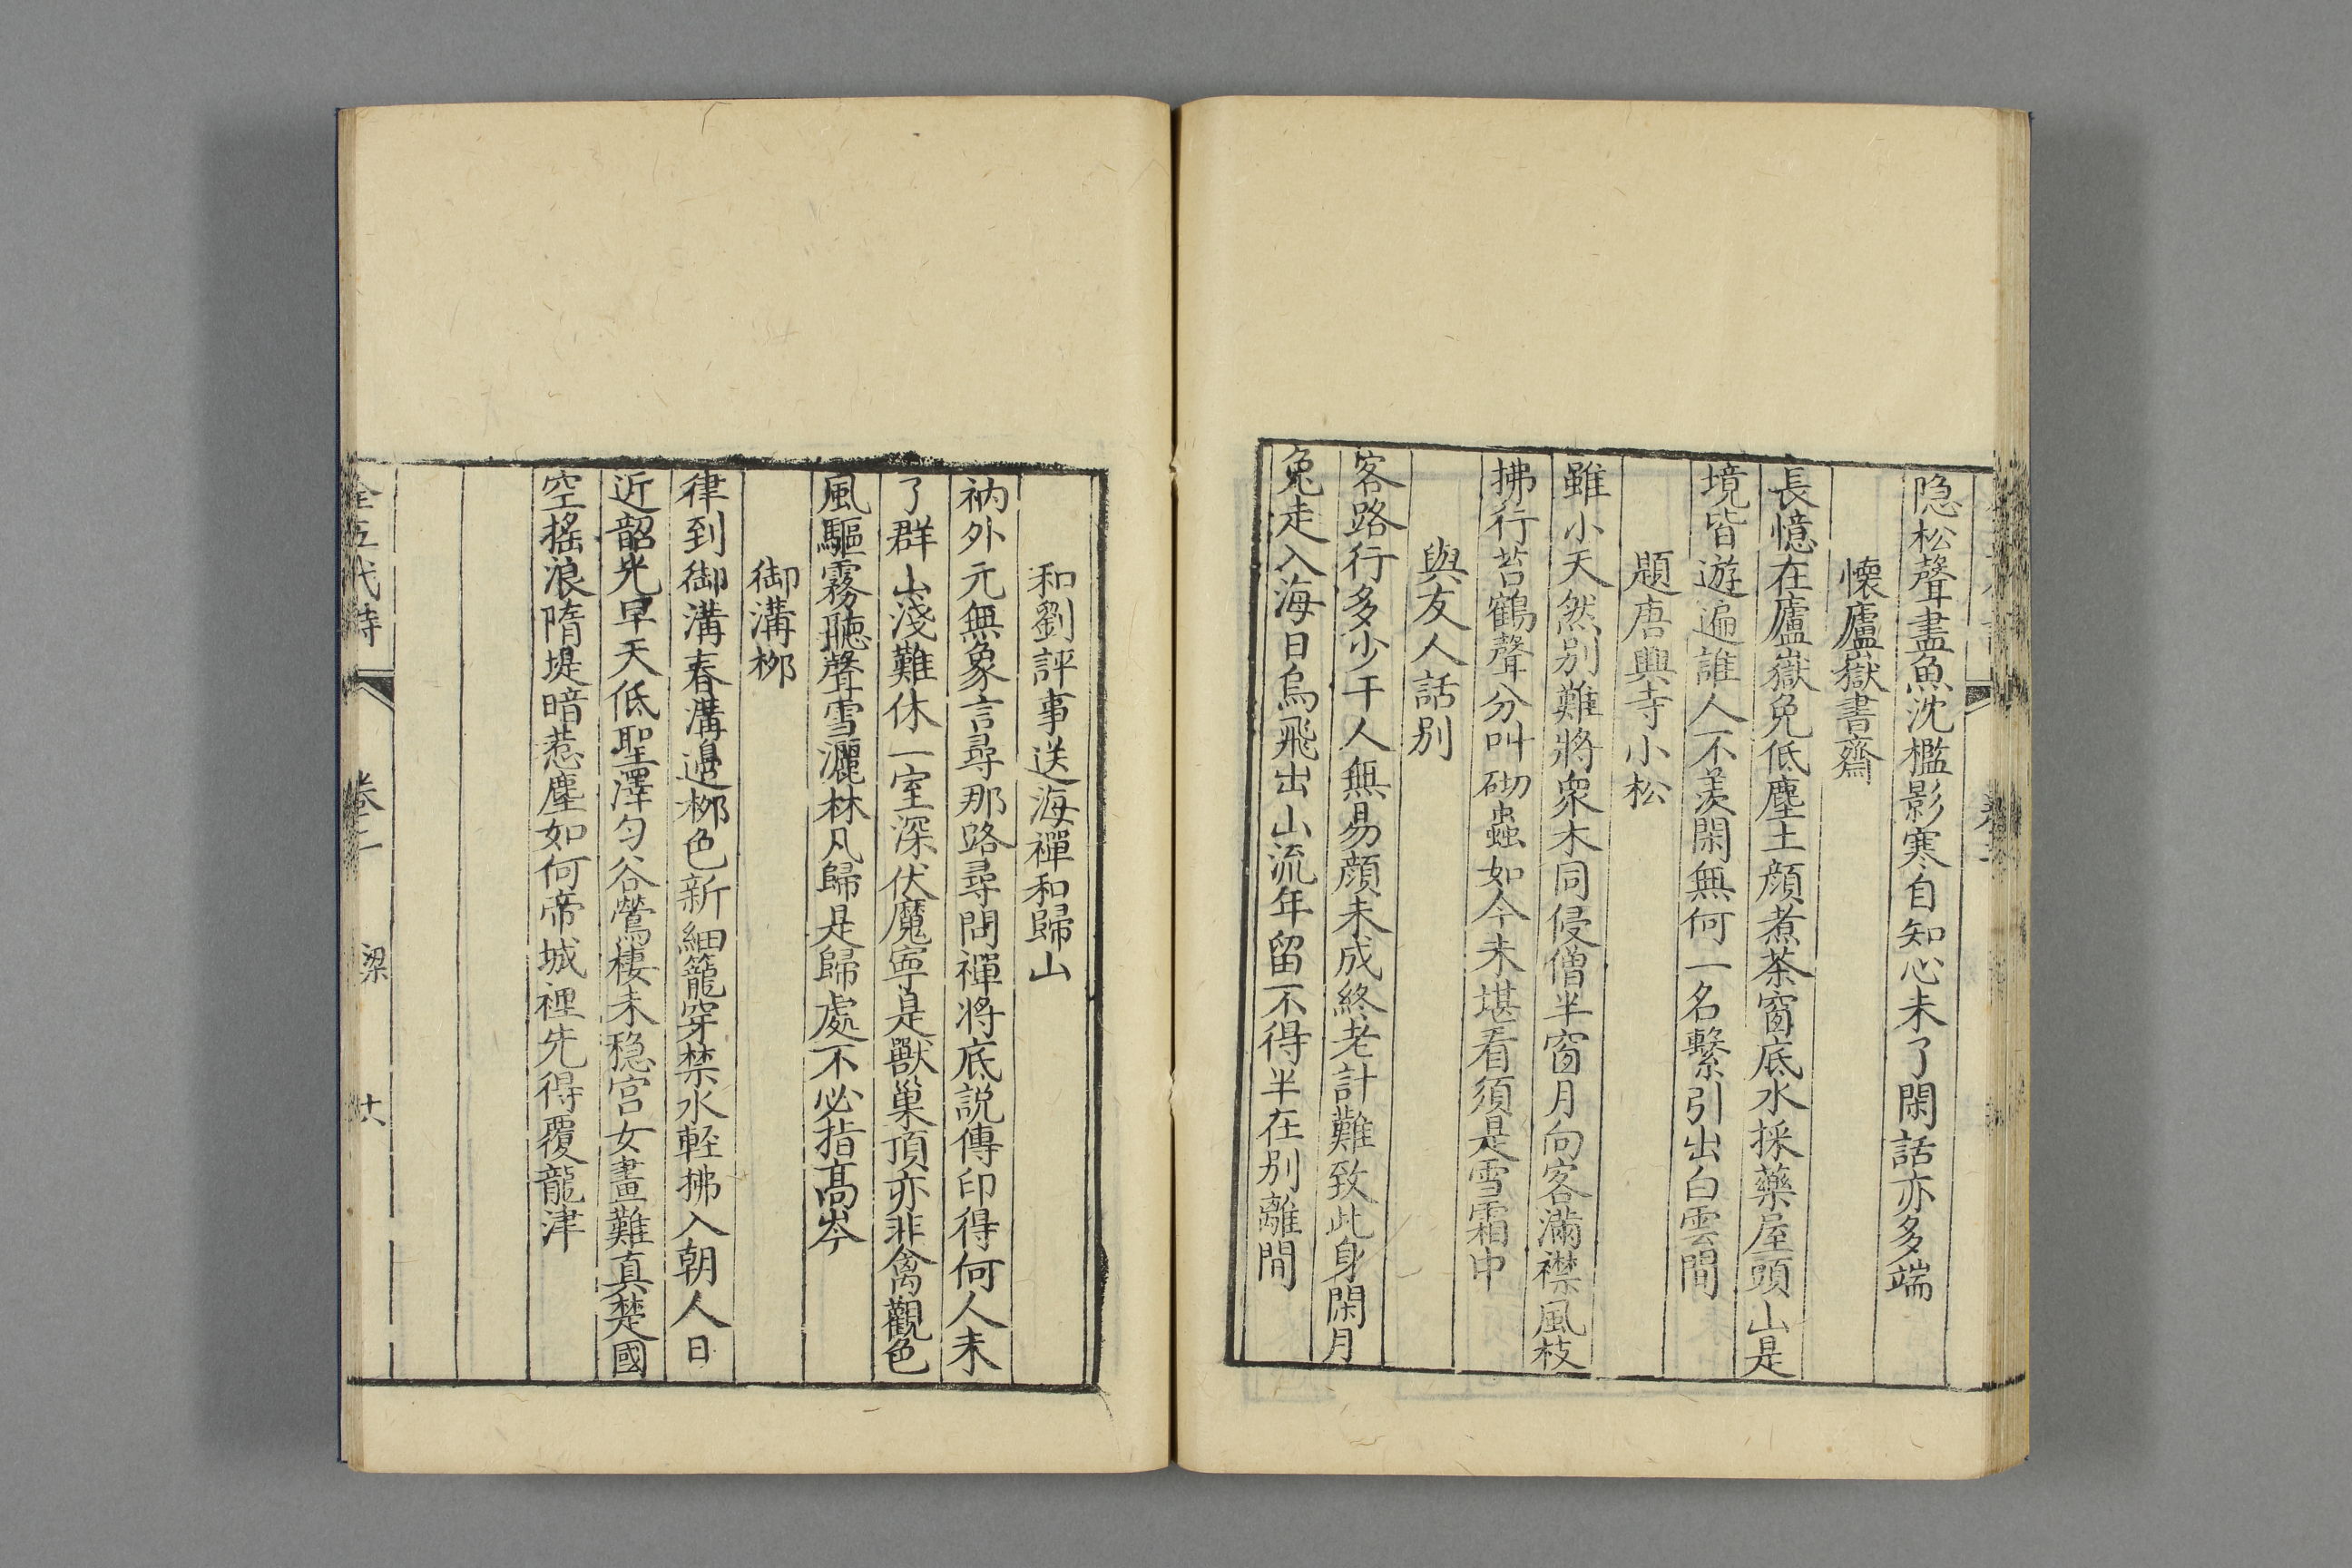 隐松聲盡魚沈檻影寒自知心未了閑話亦多端
懐廬嶽書齋
長憶在廬嶽免低塵土顔煮茶窗底水採藥屋頭山是
境皆遊遍誰人不羨閑無何一名繫引出白雲間
題唐興寺小松
雖小天然别難將衆木同侵僧半窗月向客滿襟風枝
拂行苔鶴聲分叫砌蟲如今未堪看須是雪霜中
與友人話别
客路行多少干人無易顔未成終老計難致此身閑月
兔走入海日烏飛出山流年留不得半在别離間
和劉評事送海禪和歸山
衲外元無象言尋那路尋問禪將底説傳印得何人未
了群山淺難休一室深伏魔寧是獸巢頂亦非禽觀色
風驅霧聽聲雪灑林凡歸是歸處不必指髙岑
御溝栁
律到御溝春溝邉栁色新細籠穿禁水輕拂入朝人日
近韶光早天低聖澤匀谷鶯棲未稳宫女畫難真楚國
空摇浪隋堤暗惹塵如何帝城裡先得覆龍津
全五代詩
卷二
梁
十六